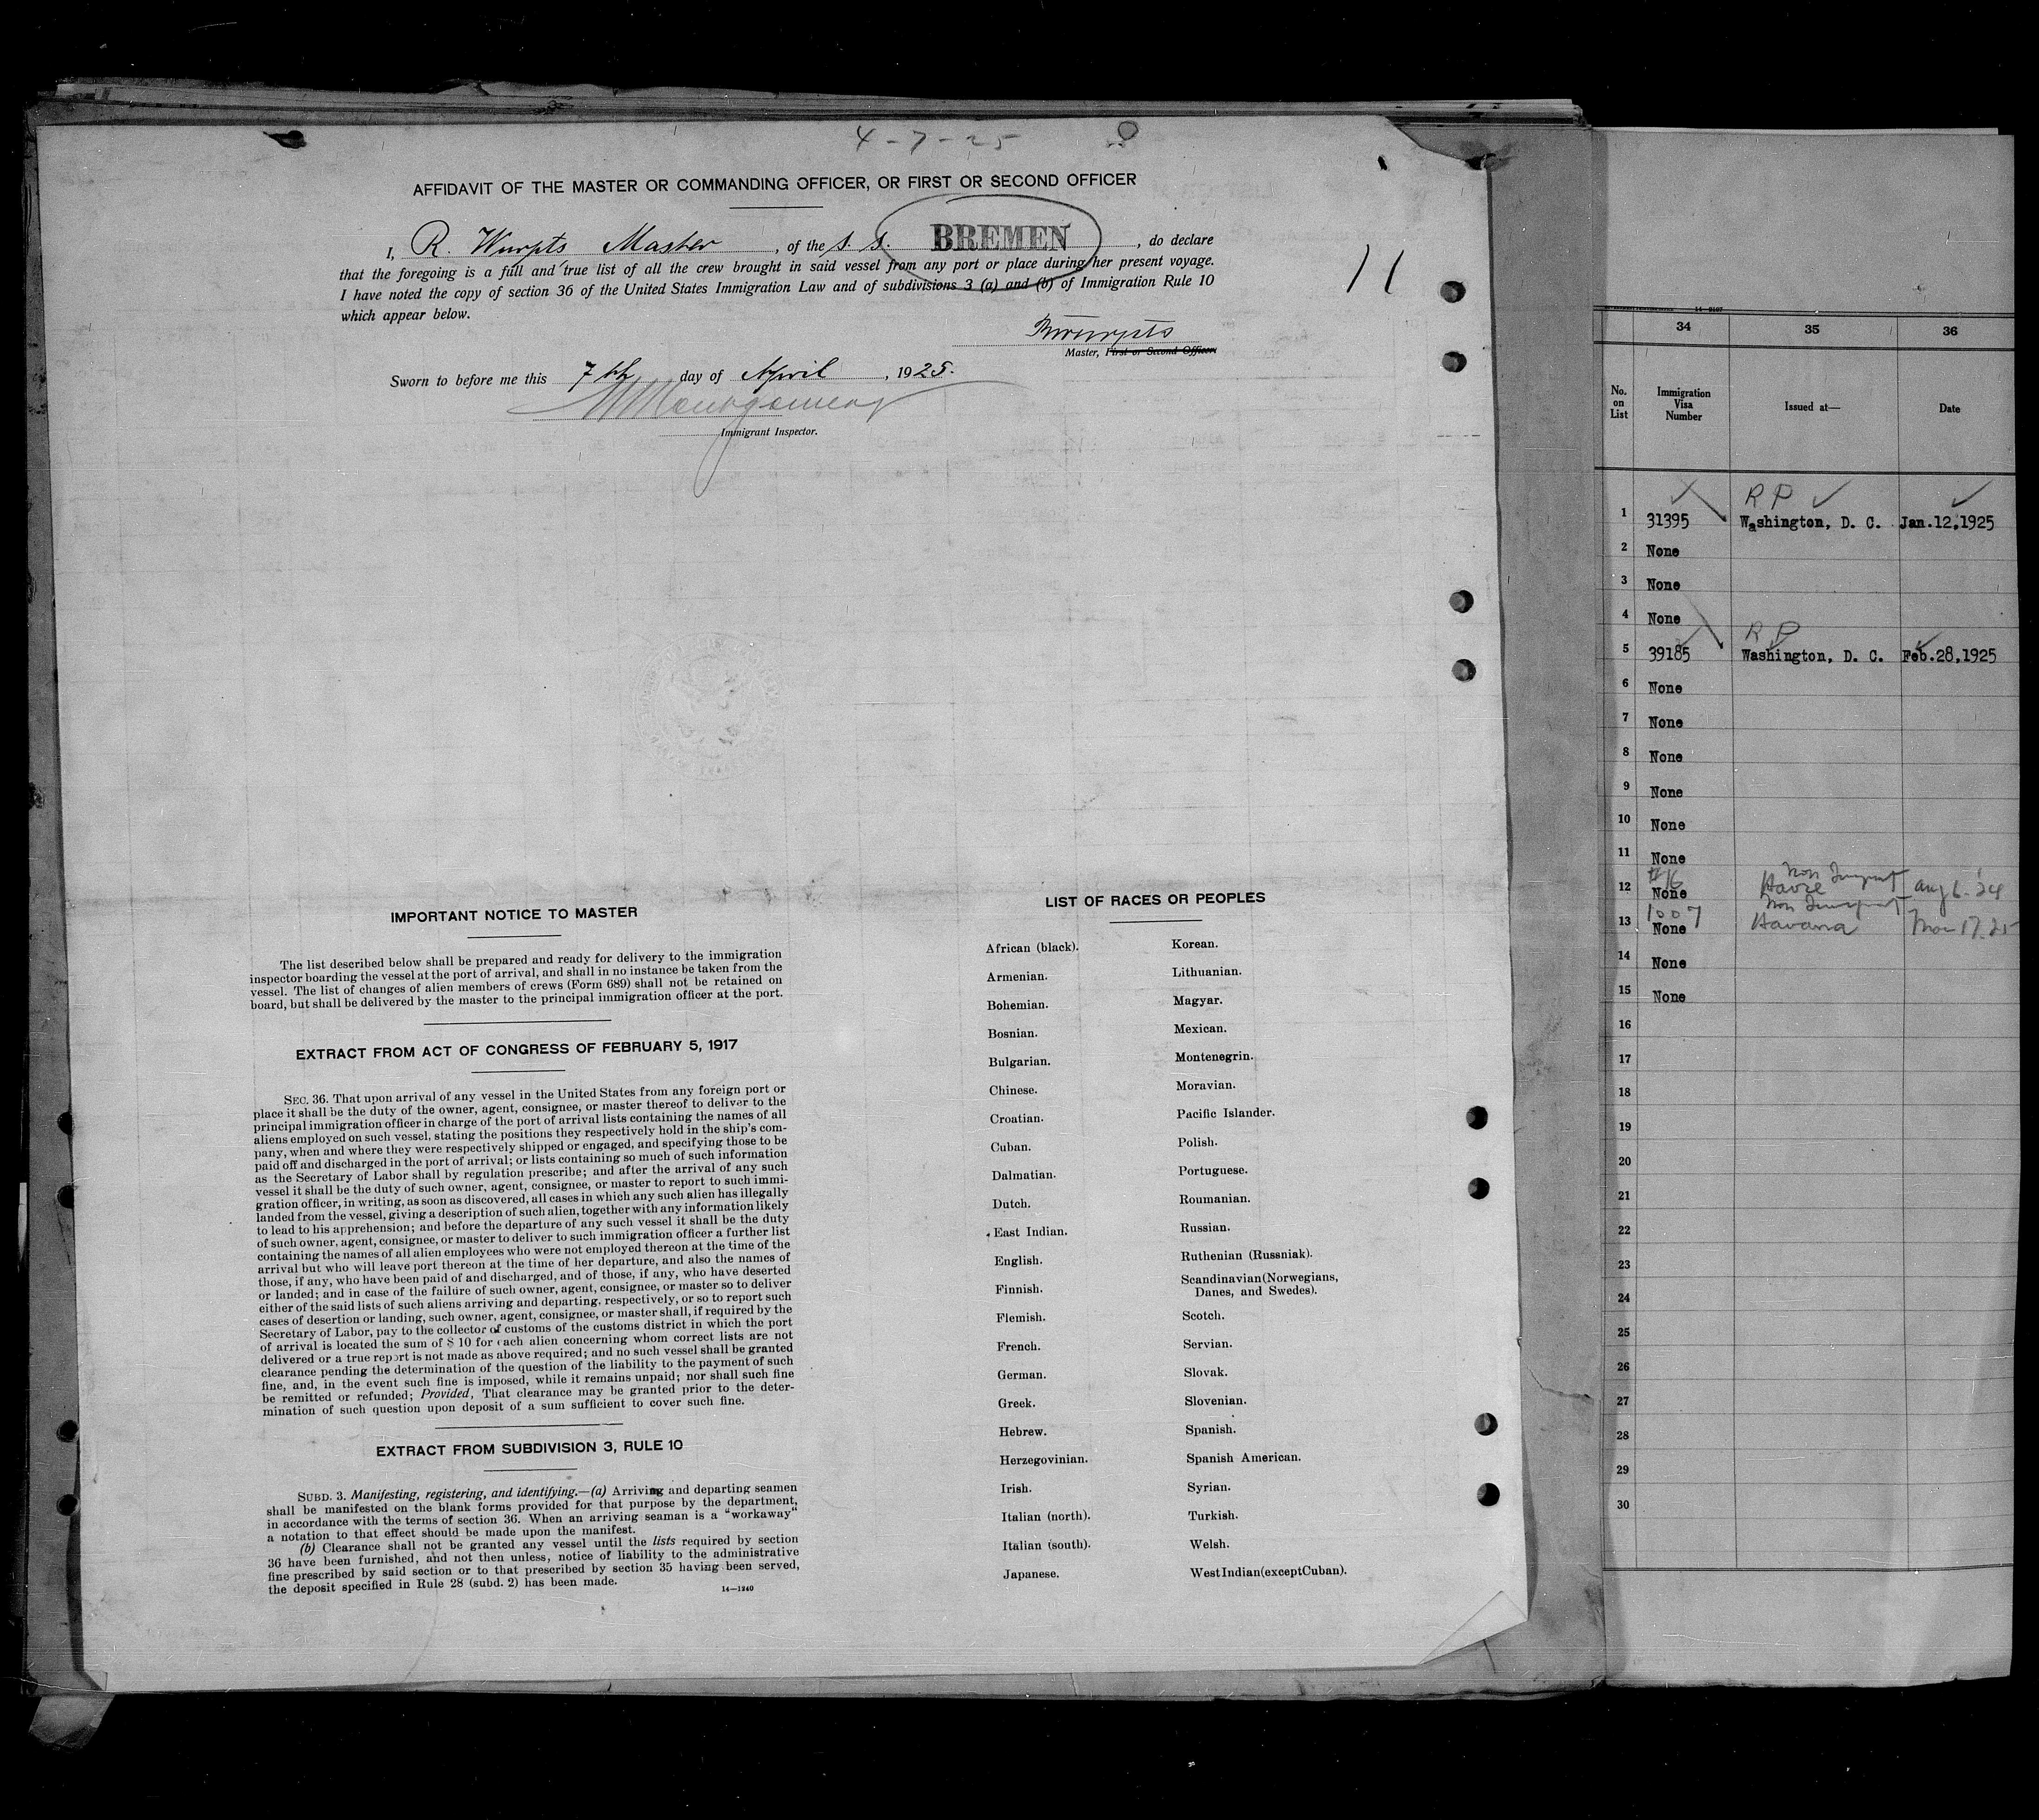 4-7-25
AFFIDAVIT OF THE MASTER OR COMMANDING OFFICER, OR FIRST OR SECOND OFFICER
I, R. Wurpts Master, of the s. s. BREMEN, do declare
that the foregoing is a full and true list of all the crew brought in said vessel from any port or place during her present voyage.
I have noted the copy of section 36 of the United States Immigration Law and of subdivisions 3 (a) and (b) of Immigration Rule 10
which appear below.
11
Master, First or Second Officer.
Sworn to before me this 7th day of April, 1925.
Montgomery
Immigrant Inspector.
IMPORTANT NOTICE TO MASTER
The list described below shall be prepared and ready for delivery to the immigration
inspector boarding the vessel at the port of arrival, and shall in no instance be taken from the
vessel. The list of changes of alien members of crews (Form 689) shall not be retained on
board, but shall be delivered by the master to the principal immigration officer at the port.
EXTRACT FROM ACT OF CONGRESS OF FEBRUARY 5, 1917
SEC. 36. That upon arrival of any vessel in the United States from any foreign port or
place it shall be the duty of the owner, agent, consignee, or master thereof to deliver to the
principal immigration officer in charge of the port of arrival lists containing the names of all
aliens employed on such vessel, stating the positions they respectively hold in the ship's com-
pany, when and where they were respectively shipped or engaged, and specifying those to be
paid off and discharged in the port of arrival; or lists containing so much of such information
as the Secretary of Labor shall by regulation prescribe; and after the arrival of any such
vessel it shall be the duty of such owner, agent, consignee, or master to report to such immi-
gration officer, in writing, as soon as discovered, all cases in which any such alien has illegally
landed from the vessel, giving a description of such alien, together with any information likely
to lead to his apprehension; and before the departure of any such vessel it shall be the duty
of such owner, agent, consignee, or master to deliver to such immigration officer a further list
containing the names of all alien employees who were not employed thereon at the time of the
arrival but who will leave port thereon at the time of her departure, and also the names of
those, if any, who have been paid of and discharged, and of those, if any, who have deserted
or landed; and in case of the failure of such owner, agent, consignee, or master so to deliver
either of the said lists of such aliens arriving and departing, respectively, or so to report such
cases of desertion or landing, such owner, agent, consignee, or master shall, if required by the
Secretary of Labor, pay to the collector of customs of the customs district in which the port
of arrival is located the sum of $ 10 for each alien concerning whom correct lists are not
delivered or a true report is not made as above required; and no such vessel shall be granted
clearance pending the determination of the question of the liability to the payment of such
fine, and, in the event such fine is imposed, while it remains unpaid; nor shall such fine
be remitted or refunded; Provided, That clearance may be granted prior to the deter-
mination of such question upon deposit of a sum sufficient to cover such fine.
EXTRACT FROM SUBDIVISION 3, RULE 10
SUBD. 3. Manifesting, registering, and identifying.—(a) Arriving and departing seamen
shall be manifested on the blank forms provided for that purpose by the department,
in accordance with the terms of section 36. When an arriving seaman is a "workaway"
a notation to that effect should be made upon the manifest.
(b) Clearance shall not be granted any vessel until the lists required by section
36 have been furnished, and not then unless, notice of liability to the administrative
fine prescribed by said section or to that prescribed by section 35 having been served,
the deposit specified in Rule 28 (subd. 2) has been made.
14—1240
LIST OF RACES OR PEOPLES
African (black). Korean.
Armenian. Lithuanian.
Bohemian. Magyar.
Bosnian. Mexican.
Bulgarian. Montenegrin.
Chinese. Moravian.
Croatian. Pacific Islander.
Cuban. Polish.
Dalmatian. Portuguese.
Dutch. Roumanian.
East Indian. Russian.
English. Ruthenian (Russniak).
Finnish. Scandinavian (Norwegians,
Danes, and Swedes).
Flemish. Scotch.
French. Servian.
German. Slovak.
Greek. Slovenian.
Hebrew. Spanish.
Herzegovinian. Spanish American.
Irish. Syrian.
Italian (north). Turkish.
Italian (south). Welsh.
Japanese. West Indian (except Cuban).
34 35 36
No. on List Immigration Visa Number Issued at— Date
R P
1 31395 Washington, D. C. Jan.12,1925
2 None
3 None
4 None
R P
5 39185 Washington, D. C. Feb.28,1925
6 None
7 None
8 None
9 None
10 None
11 None
12 None #16 Havre Aug 6. 24
13 None 1007 Havana 17. 25
14 None
15 None
16
17
18
19
20
21
22
23
24
25
26
27
28
29
30